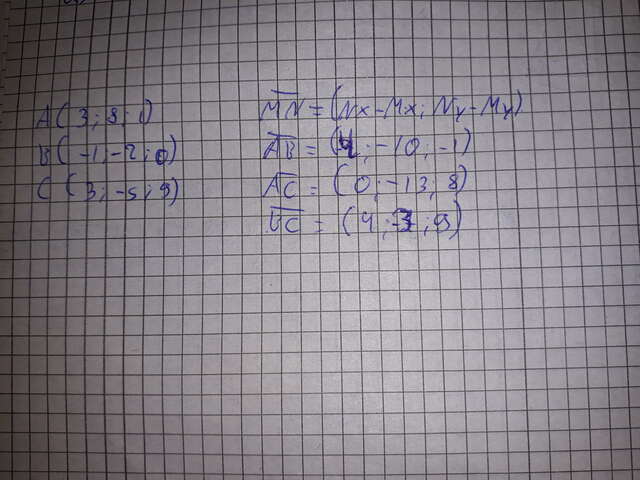 A(3; 8; 1)
B(-1; -2; 0)
C(3; -5; 9)
MN = (Nx-Mx; Ny-My)
AB = (-4; -10; -1)
AC = (0; -13; 8)
BC = (4; -3; 9)